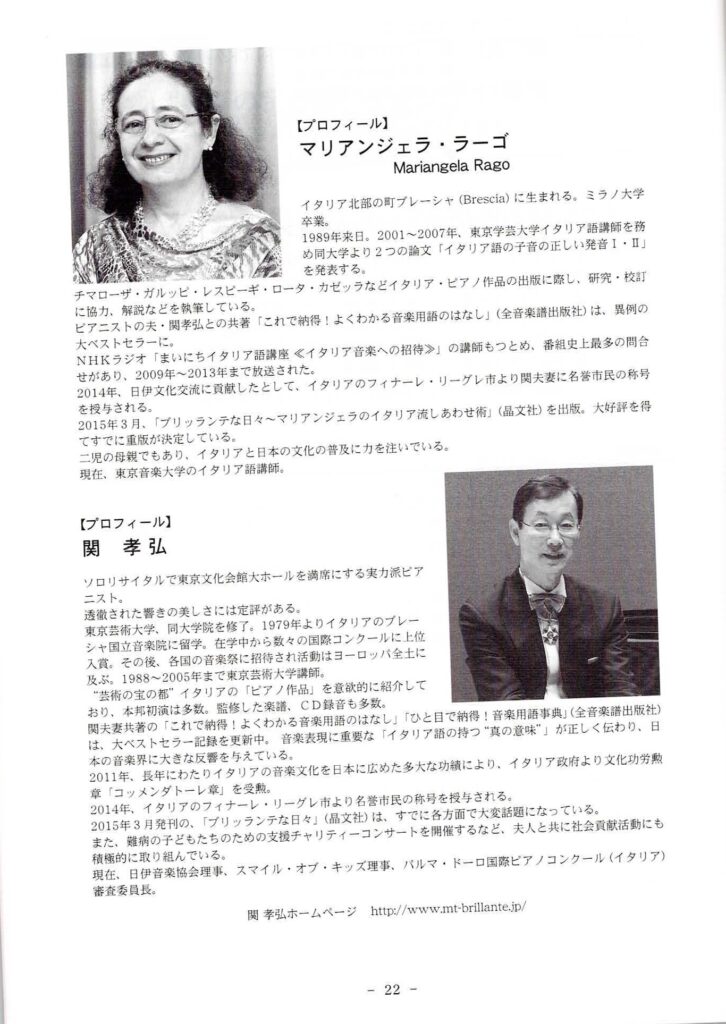 【プロフィール】
マリアンジェラ・ラーゴ
Mariangela Rago
イタリア北部の町ブレーシャ (Brescia) に生まれる。ミラノ大学
卒業。
1989年来日。2001〜2007年、東京学芸大学イタリア語講師を務
め同大学より２つの論文「イタリア語の子音の正しい発音Ⅰ・Ⅱ」
を発表する。
チマローザ・ガルッピ・レスピーギ・ロータ・カゼッラなどイタリア・ピアノ作品の出版に際し、研究・校訂
に協力、解説などを執筆している。
ピアニストの夫・関孝弘との共著「これで納得！よくわかる音楽用語のはなし」(全音楽譜出版社) は、異例の
大ベストセラーに。
ＮＨＫラジオ「まいにちイタリア語講座 ≪イタリア音楽への招待≫」の講師もつとめ、番組史上最多の問合
せがあり、2009年〜2013年まで放送された。
2014年、日伊文化交流に貢献したとして、イタリアのフィナーレ・リーグレ市より関夫妻に名誉市民の称号
を授与される。
2015年３月、「ブリッランテな日々〜マリアンジェラのイタリア流しあわせ術」(晶文社) を出版。大好評を得
てすでに重版が決定している。
二児の母親でもあり、イタリアと日本の文化の普及に力を注いでいる。
現在、東京音楽大学のイタリア語講師。
【プロフィール】
関　孝弘
ソロリサイタルで東京文化会館大ホールを満席にする実力派ピア
ニスト。
透徹された響きの美しさには定評がある。
東京芸術大学、同大学院を修了。1979年よりイタリアのブレー
シャ国立音楽院に留学。在学中から数々の国際コンクールに上位
入賞。その後、各国の音楽祭に招待され活動はヨーロッパ全土に
及ぶ。1988〜2005年まで東京芸術大学講師。
“芸術の宝の都” イタリアの「ピアノ作品」を意欲的に紹介して
おり、本邦初演は多数。監修した楽譜、ＣＤ録音も多数。
関夫妻共著の「これで納得！よくわかる音楽用語のはなし」「ひと目で納得！音楽用語事典」(全音楽譜出版社)
は、大ベストセラー記録を更新中。 音楽表現に重要な「イタリア語の持つ “真の意味”」が正しく伝わり、日
本の音楽界に大きな反響を与えている。
2011年、長年にわたりイタリアの音楽文化を日本に広めた多大な功績により、イタリア政府より文化功労勲
章「コッメンダトーレ章」を受勲。
2014年、イタリアのフィナーレ・リーグレ市より名誉市民の称号を授与される。
2015年３月発刊の、「ブリッランテな日々」(晶文社) は、すでに各方面で大変話題になっている。
また、難病の子どもたちのための支援チャリティーコンサートを開催するなど、夫人と共に社会貢献活動にも
積極的に取り組んでいる。
現在、日伊音楽協会理事、スマイル・オブ・キッズ理事、パルマ・ドーロ国際ピアノコンクール (イタリア)
審査委員長。
関 孝弘ホームページ　http://www.mt-brillante.jp/
－ 22 －